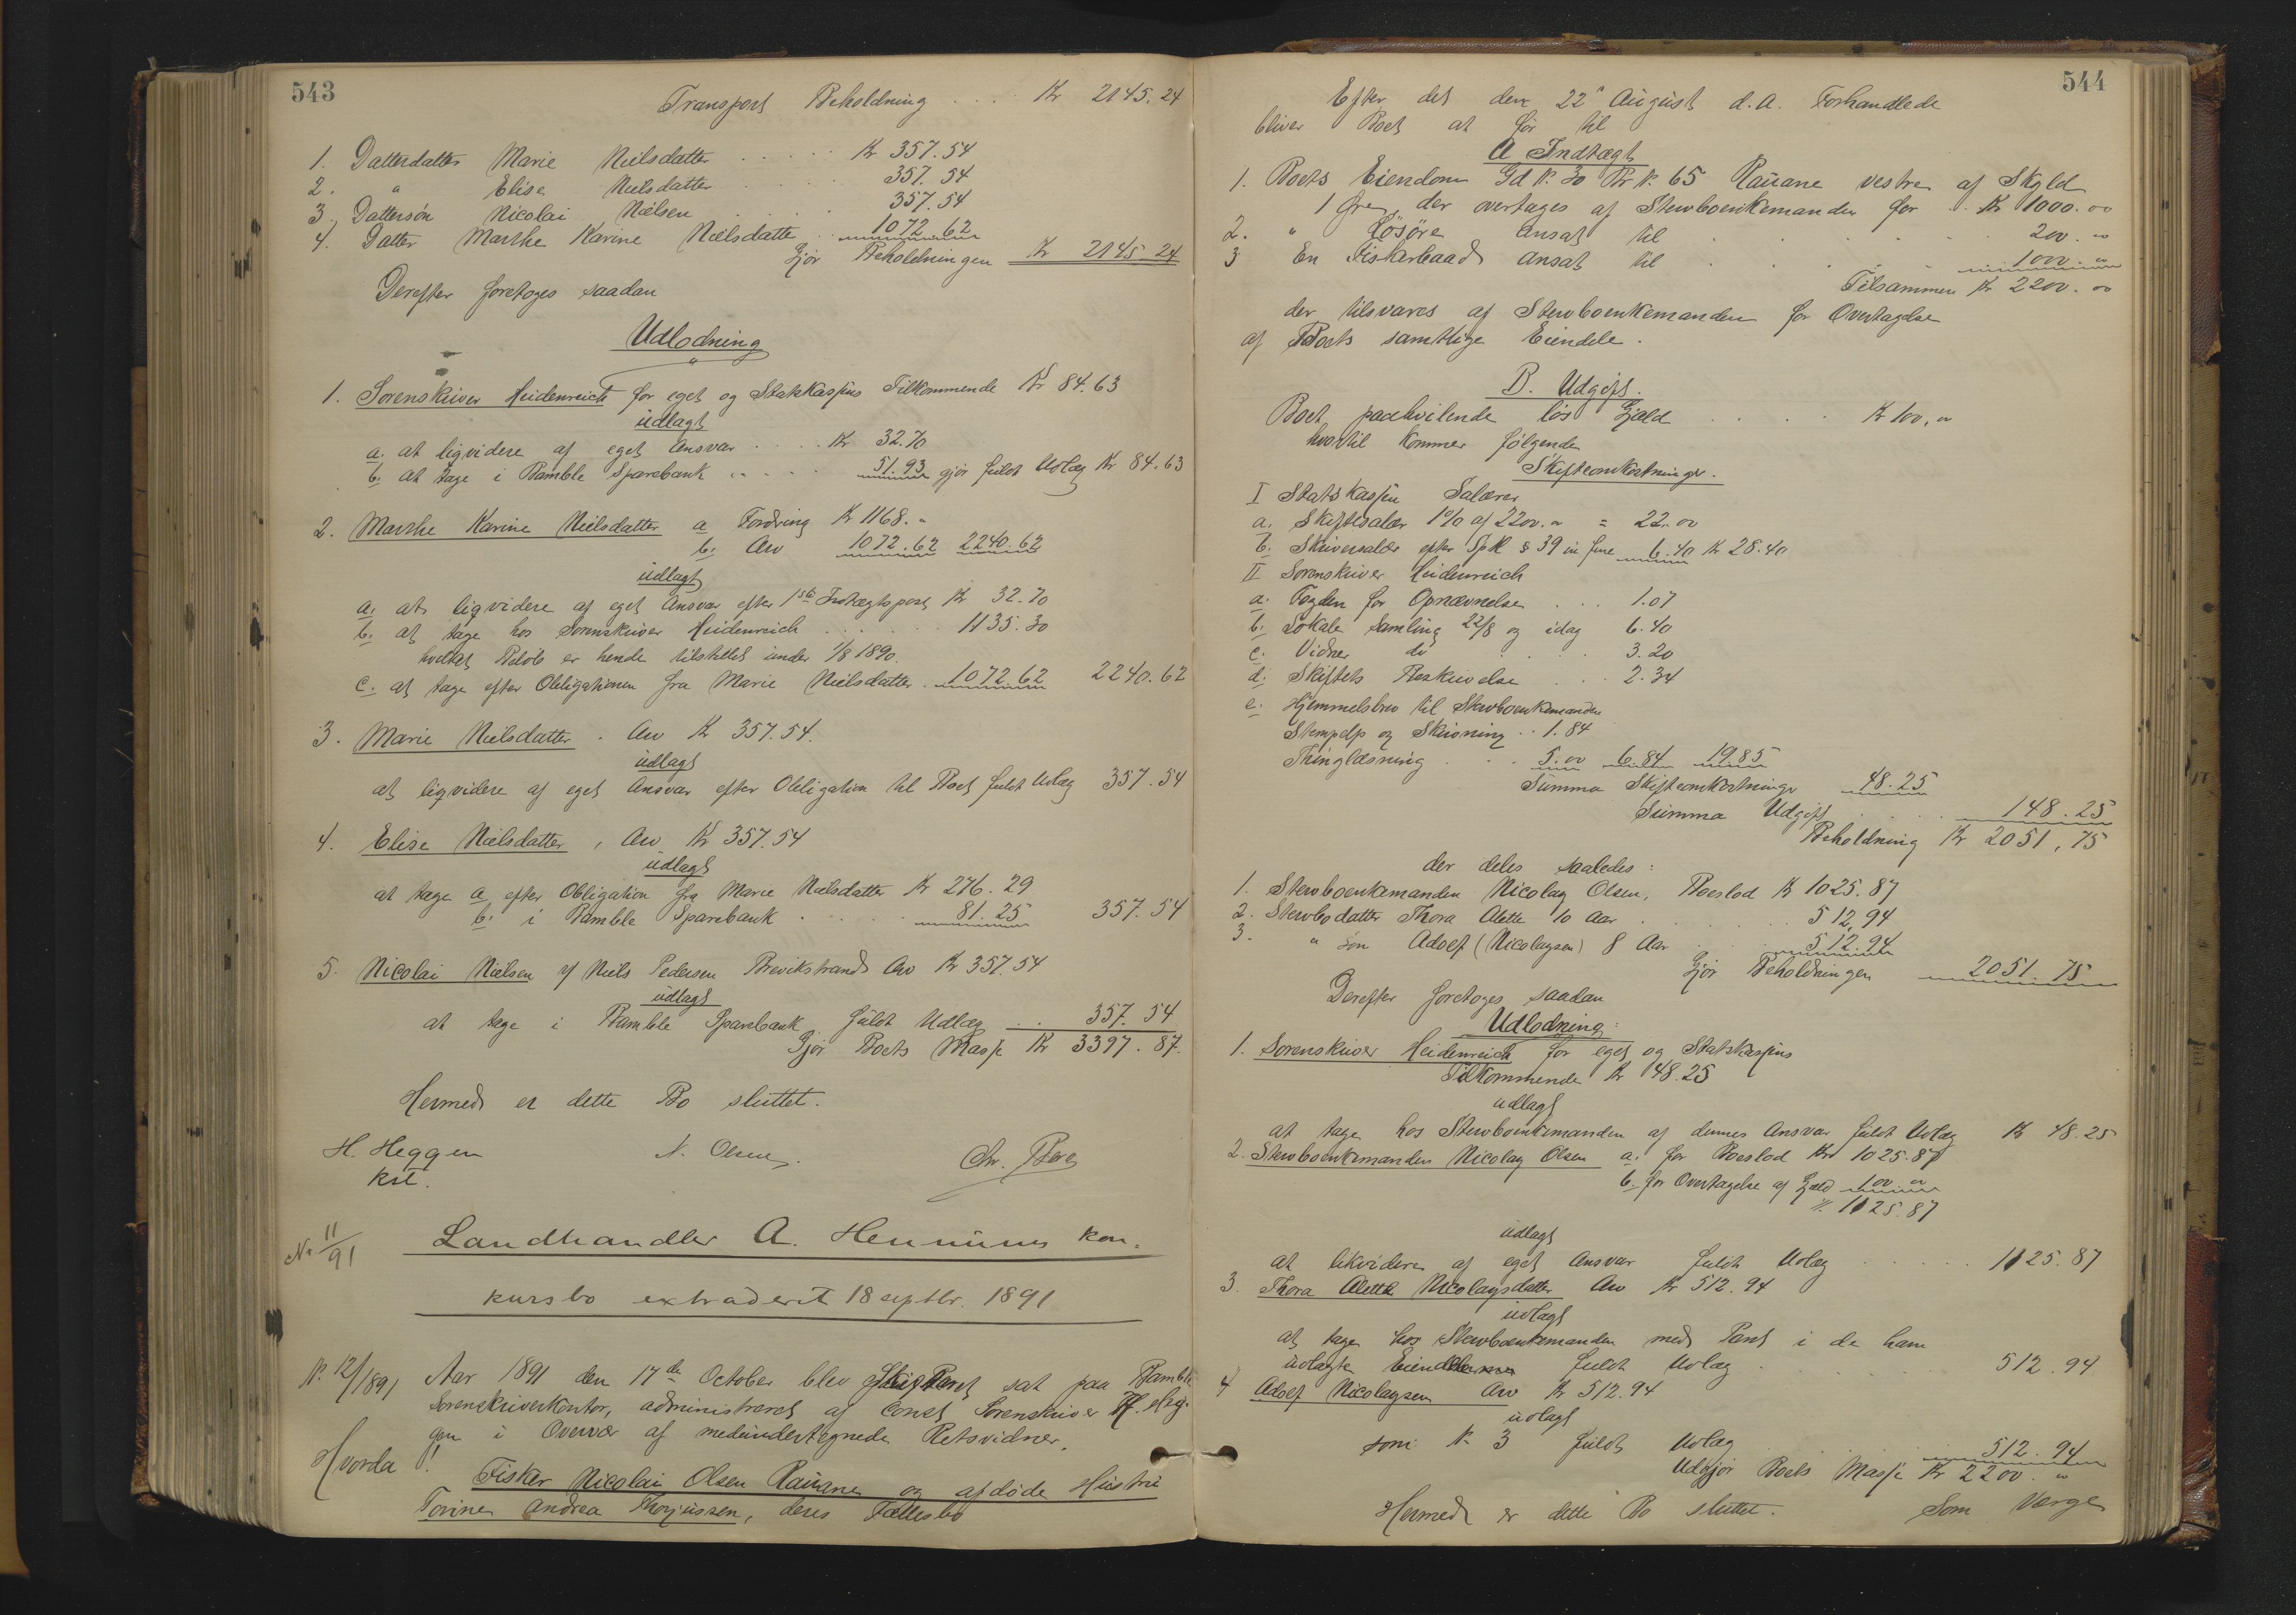 543
Transport Beholdning . . . Kr 2145.24
1. Datterdatter Marie Nielsdatter . . . . . Kr 357.54
2. " Elise Nielsdatter . . . . 357.54
3. Dattersøn Nicolai Nielsen . . . . . 357.54
4. Datter Marthe Karine Nielsdatter . . 1072.62
Gjør Beholdningen Kr 2145.24
Derefter foretoges saadan
Udlodning
1. Sorenskriver Heidenreich for eget og Statskassens Tilkommende Kr 84.63
udlagt
a. at liqvidere af eget Ansvar . . . . Kr 32.70
b. at tage i Bamble Sparebank . . . . . 51.93 gjør fuldt Udlæg Kr 84.63
2. Marthe Karine Nielsdatter a Fordring Kr 1168.-
b. Arv 1072.62 2240.62
udlagt
a. at liqvidere af eget Ansvar efter 1ste Indtægtspost Kr 32.70
b. at tage hos Sorenskriver Heidenreich . . . . . . 1135.30
hvilket Beløb er hende tilstillet under 1/8 1890.
c. at tage efter Obligationen fra Marie Nielsdatter . 1072.62 2240.62
3. Marie Nielsdatter . Arv Kr 357.54.
udlagt
at liqvidere af eget Ansvar efter Obligation til Boet fuldt Udlæg 357.54
4. Elise Nielsdatter , Arv Kr 357.54
udlagt
at tage a efter Obligation fra Marie Nielsdatter Kr 276.29
b. i Bamble Sparebank . . . . . . 81.25 357.54
5. Nicolai Nielsen af Niels Pedersen Brevikstrand Arv Kr 357.54
udlagt
at tage i Bamble Sparebank fuldt Udlæg . . . 357.54
Gjør Boets Masse Kr 3397.87.
Hermed er dette Bo sluttet.
H. Heggen N. Olsen. Chr. Berg
kst.
No 11/91 Landhandler A. Hennums kon-
kursbo extraderet 18 septbr. 1891
No 12/1891 Aar 1891 den 17de October blev Skifteret sat paa Bamble
Sorenskriverkontor, administreret af const Sorenskriver H. Heg-
gen i Overvær af medundertegnede Retsvidner.
Hvorda!
Fisker Nicolai Olsen Rauane og afdøde Hustru
Torine Andrea Thorjussen, deres Fællesbo
544
Efter det den 22de August d.A. Forhandlede
bliver Boet at før til
A Indtægt
1. Boets Eiendom Gd No 30 Br No 65 Rauane vestre af Skyld
1 øre, der overtages af Stervboenkemanden for . Kr 1000.00
2. " Løsøre ansat til . . . . . . 200.00
3 En Fiskerbaad ansat til . . . . . 1000.00
Tilsammen Kr 2200.00
der tilsvares af Stervboenkemanden for Overtagelse
af Boets samtlige Eiendele.
B. Udgift.
Boet paahvilende løs Gjæld . . . . . Kr 100.00
hvortil kommer følgende
Skifteomkostninger.
I Statskassen Salærer
a. Skiftesalær 1% af 2200.00 = 22.00
b. Skriversalær efter Spl § 39 in fine 6.40 Kr 28.40
II Sorenskriver Heidenreich
a. Fogden for Opnævnelse . . . 1.07
b. Lokale Samling 22/8 og idag 6.40
c. Vidner do . . . . 3.20
d. Skiftets Beskrivelse . . . 2.34
e. Hjemmelsbrev til Stervboenkemanden
Stempelp og Skrivning . . 1.84
Thinglæsning . . . 5.00 6.84 19.85
Summa Skifteomkostninger 48.25
Summa Udgift . . . . . 148.25
Beholdning Kr 2051.75
der deles saaledes:
1. Stervboenkemanden Nicolay Olsen, Boeslod Kr 1025.87
2. Stervbodatter Thora Alette 10 Aar . . . . . . 512.94
3. " søn Adolf (Nicolaysen) 8 Aar . . . . . 512.94
Gjør Beholdningen 2051.75
Derefter foretoges saadan
Udlodning:
1. Sorenskriver Heidenreich for eget og Statskassens
Tilkommende Kr 48.25
udlagt
at tage hos Stervboenkemanden af dennes Ansvar fuldt Udlæg Kr 48.25
2. Stervboenkemanden Nicolay Olsen a. for Boeslod Kr 1025.87
b. for Overtagelse af Gjæld 100.00
1125.87
udlagt
at likvidere af eget Ansvar fuldt Udlæg . . . . . 1125.87
3. Thora Alette Nicolaysdatter Arv Kr 512.94
udlagt
at tage hos Stervboenkemanden med Pant i de ham
udlagte Eiendele fuldt Udlæg . . . . . 512.94
4 Adolf Nicolaysen Arv Kr 512.94
udlagt
som No 3 fuldt Udlæg . . . . . 512.94
Udgjør Boets Masse Kr 2200.00
Hermed er dette Bo sluttet. Som Værge